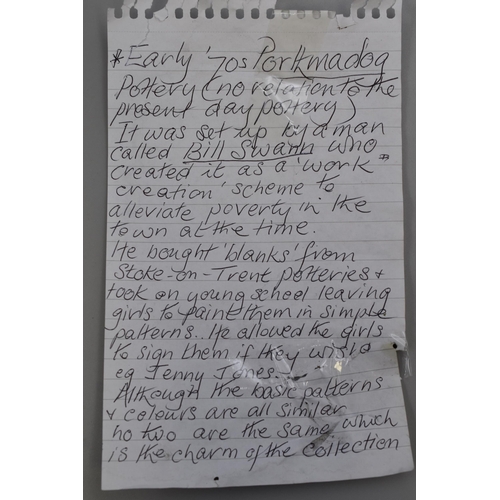 *Early '70s Porkmadog
Pottery (no relation to the
present day pottery)
It was set up by a man
called Bill Swann who
created it as a 'work
creation' scheme to
alleviate poverty in the
town at the time.
He bought 'blanks' from
Stoke-on-Trent potteries +
took on young school leaving
girls to paint them in simple
patterns.. He allowed the girls
to sign them if they
eg Jenny Jones.
Although the basic patterns
+ colours are all similar
no two are the same which
is the charm of the collection